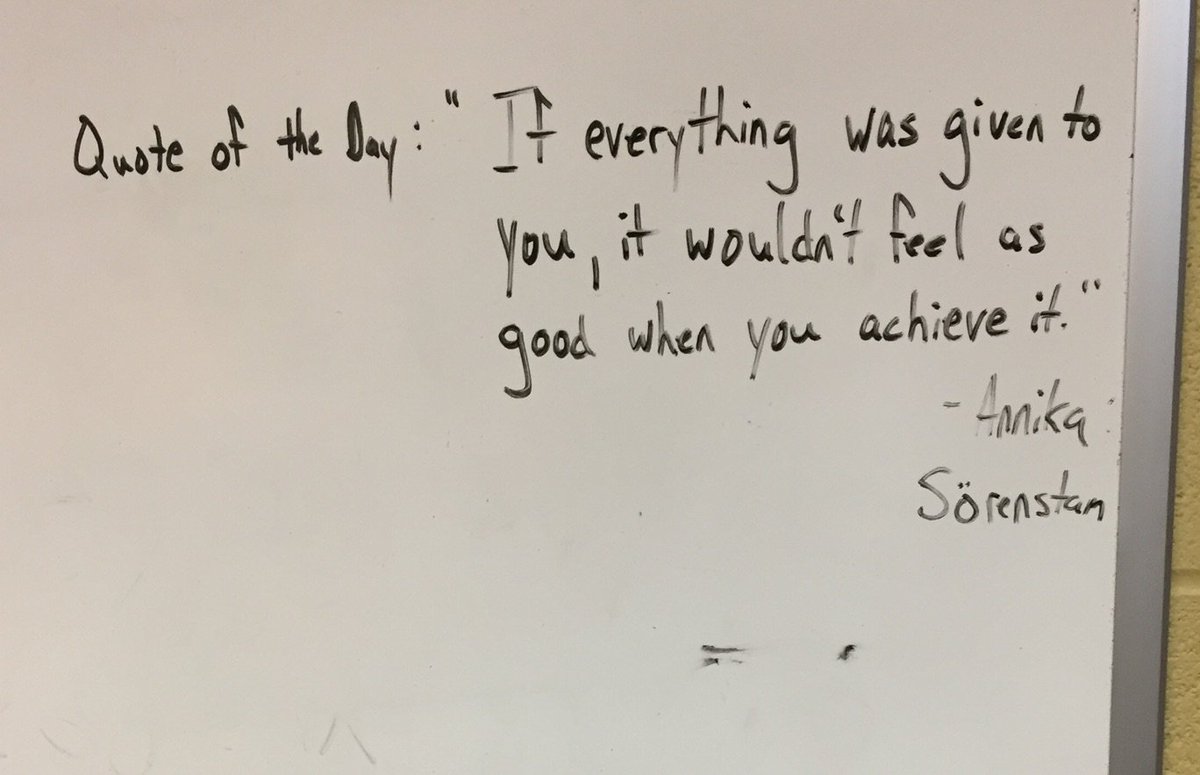 Quote of the Day: "If everything was given to
you, it wouldn't feel as
good when you achieve it."
- Annika
Sörenstam